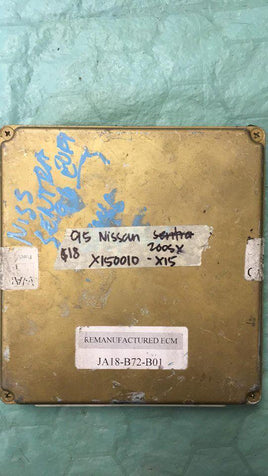 NISS
SENTRA
95 Nissan sentra
$18 200SX
X150010 - X15
REMANUFACTURED ECM
JA18-B72-B01